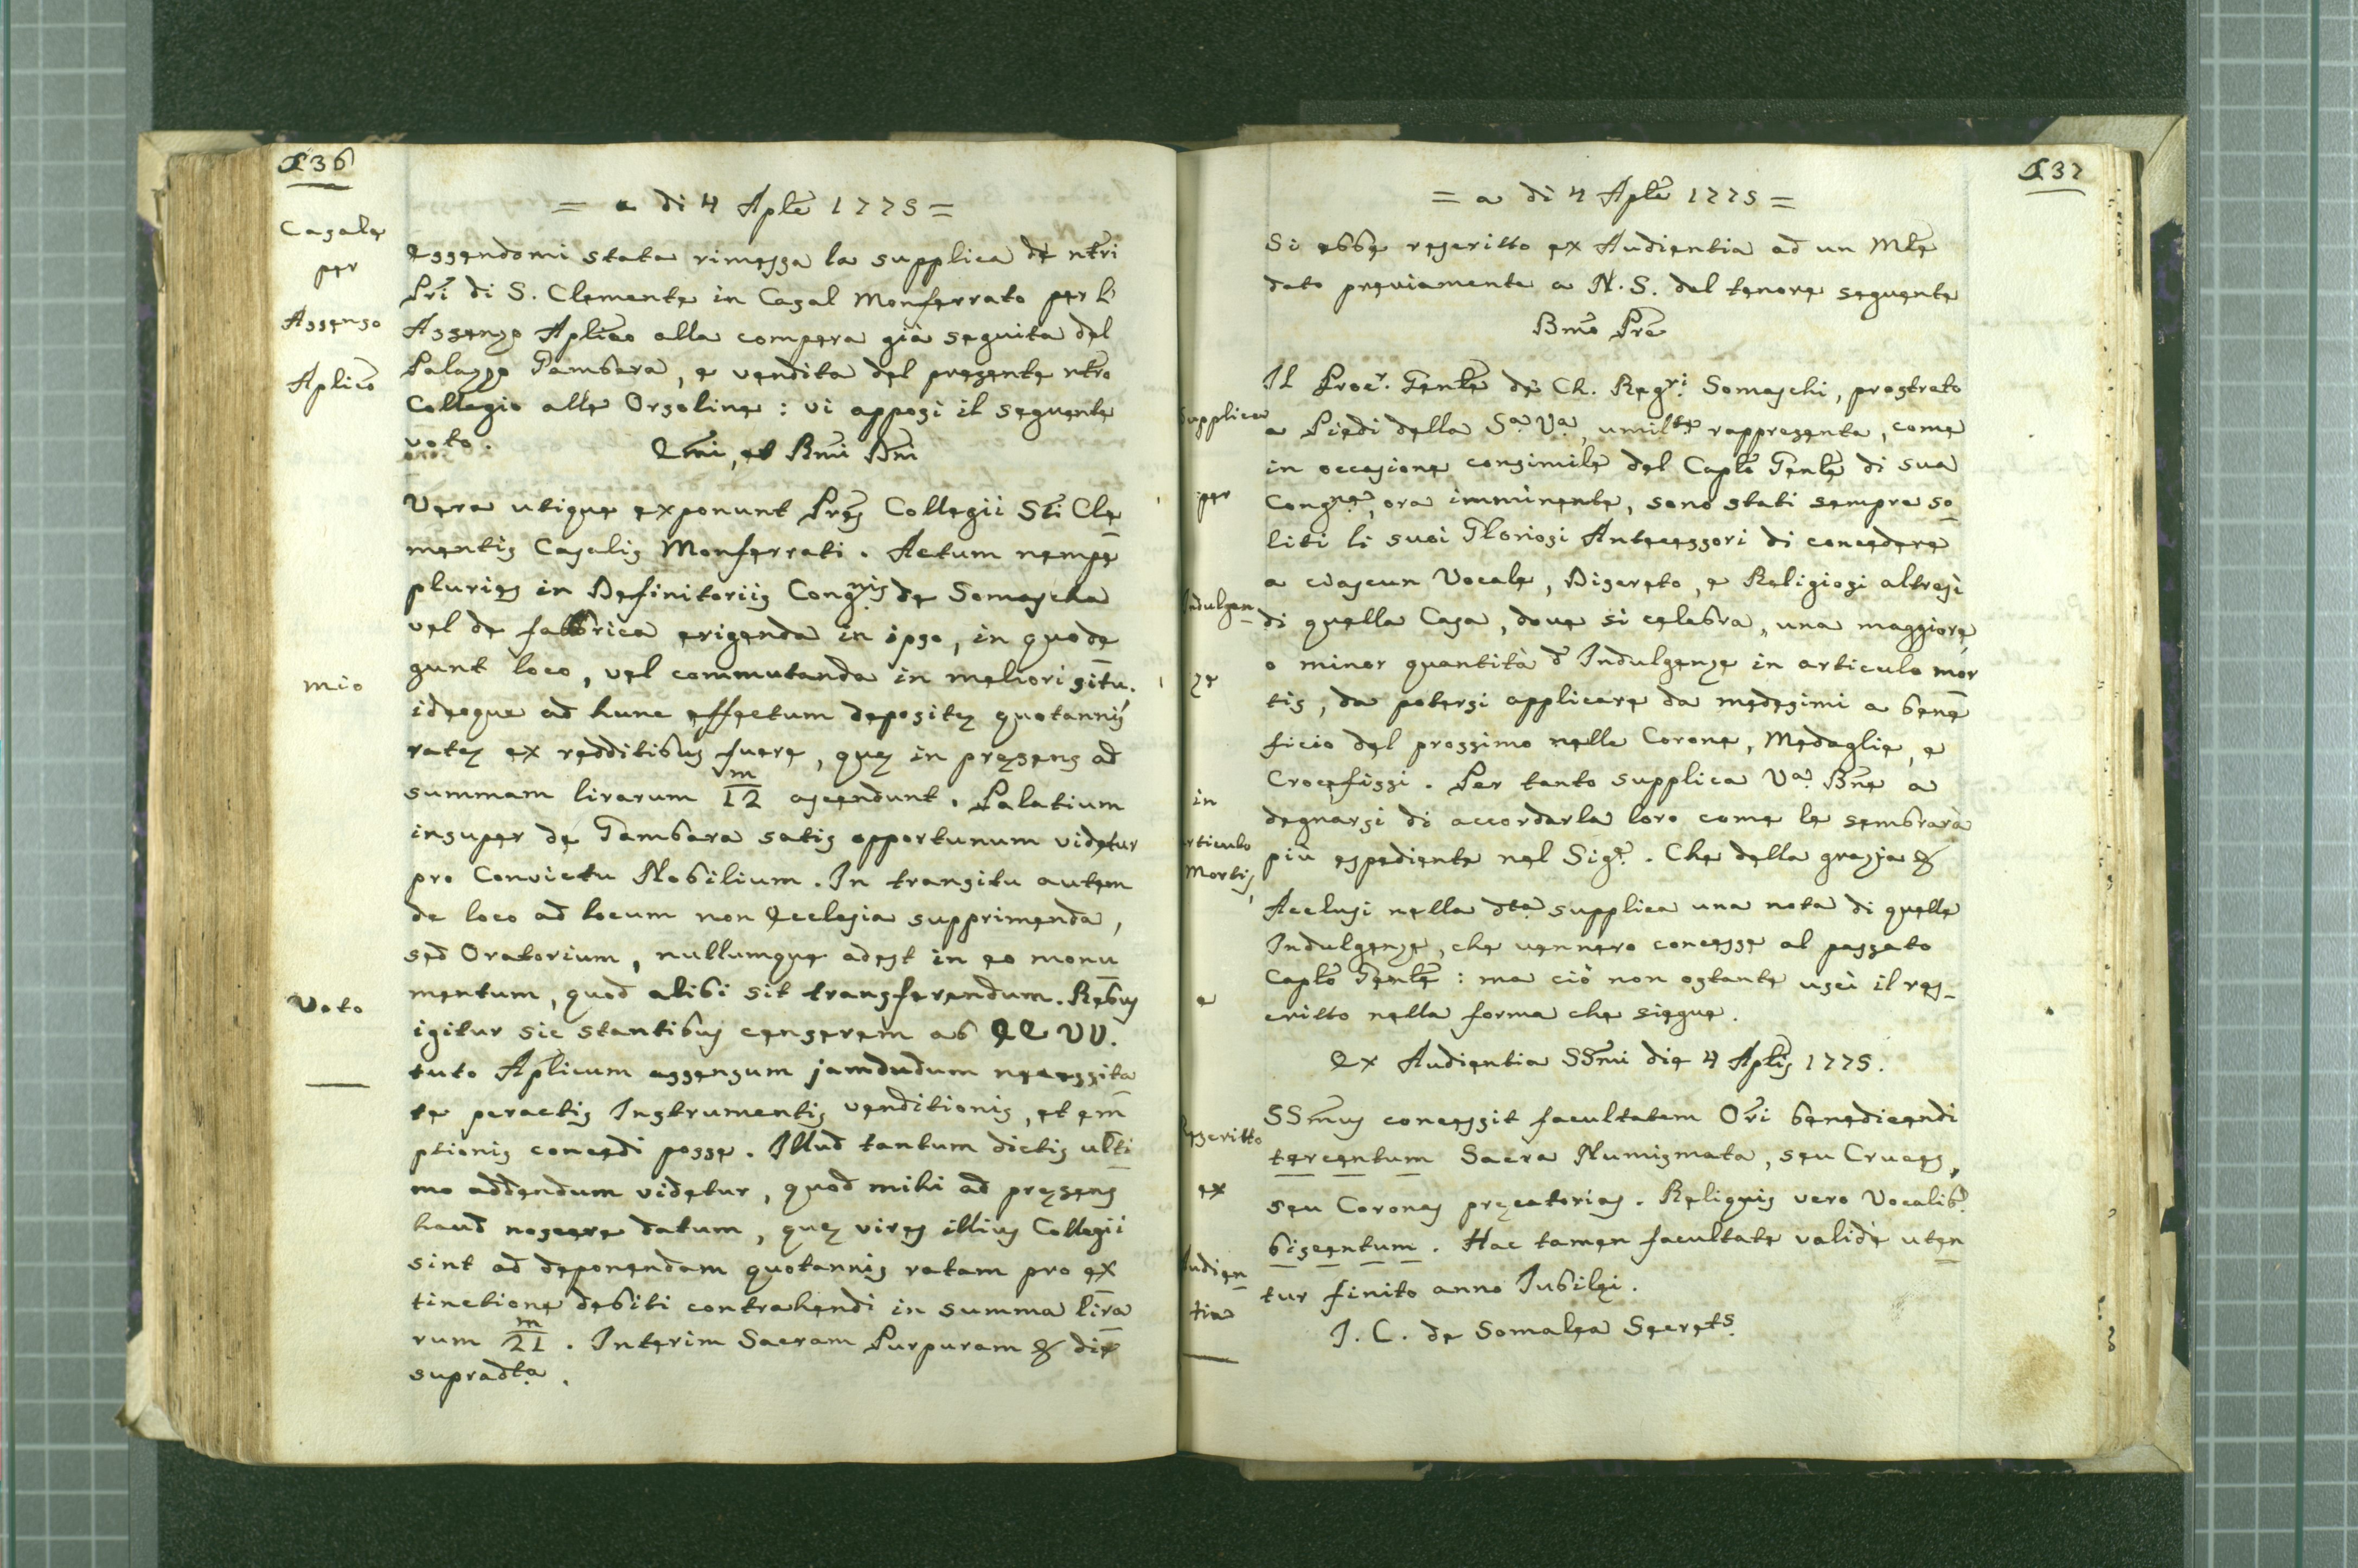 136
= a di 4 Aple 1775 =
Casale
per
Assenso
Aplico
Essendomi stata rimessa la supplica de ntri
Pri di S. Clemente in Casal Monferrato per l'
Assenso Aplico alla compera già seguita del
Palazzo Gambara, e vendita del presente ntro
Collegio alle Orsoline : vi apposi il seguente
voto.
Emi, et Rmi Dni
Vera utique exponunt Pres Collegii Sti Cle
mentis Casalis Monferrati. Actum nempe
pluries in Definitoriis Congnis de Somascha
vel de fabbrica erigenda in ipso, in quo de
gunt loco, vel commutanda in meliori situ.
mio
ideoque ad hunc effectum depositę quotannis
ratę ex redditibus fuere, quę in pręsens ad
summam lirarum 12m ascendunt. Palatium
insuper de Gambara satis opportunum videtur
pro Convictu Nobilium. In transitu autem
de loco ad locum non Ecclesia supprimenda,
sed Oratorium, nullumque adest in eo monu
mentum, quod alibi sit transferendum. Rebus
Voto
igitur sic stantibus censerem ab EE VV.
tuto Aplicum assensum jamdudum necessita
te peractis Instrumentis venditionis, et em
ptionis concedi posse. Illud tantum dictis ulti
mo addendum videtur, quod mihi ad pręsens
haud noscere datum, quę vires illius Collegii
sint ad deponendam quotannis ratam pro ex
tinctione debiti contrahendi in summa lira
rum 21m. Interim Sacram Purpuram & die
supradta.
137
= a di 4 Aple 1775 =
Si ebbe rescritto ex Audientia ad un Mle
dato previamente a N. S. del tenore seguente
Bmo Pre
Il Procr. Genle de Ch. Regri Somaschi, prostrato
Supplica
a Piedi della Sa. Va., umilte rappresenta, come
in occasione consimile del Caplo Genle di sua
per
Congne, ora imminente, sono stati sempre so
liti li suoi Gloriosi Antecessori di concedere
a ciascun Vocale, Discreto, e Religiosi altresì
Indulgen
di quella Casa, dove si celebra, una maggiore,
o minor quantità d'Indulgenze in articulo mor
ze
tis, da potersi applicare da medesimi a bene
ficio del prossimo nelle Corone, Medaglie, e
Crocefissi. Per tanto supplica Va. Bne a
in
degnarsi di accordarla loro come le sembrarà
articulo
più espediente nel Sigr. Che della grazia &
Mortis,
Acclusi nella dta supplica una nota di quelle
Indulgenze, che vennero concesse al passato
Caplo Genle : ma ciò non ostante uscì il res-
e
critto nella forma che siegue.
Ex Audientia SSmi die 4 Aplis 1775.
SSmus concessit facultatem Ori benedicendi
Rescritto
tercentum Sacra Numismata, seu Cruces,
ex
seu Coronas pręcatorias. Reliquis vero Vocalib.
biscentum. Hac tamen facultate validè uten
Audien
tur finito anno Jubilęi.
tia
J. C. de Somalea Secrets.